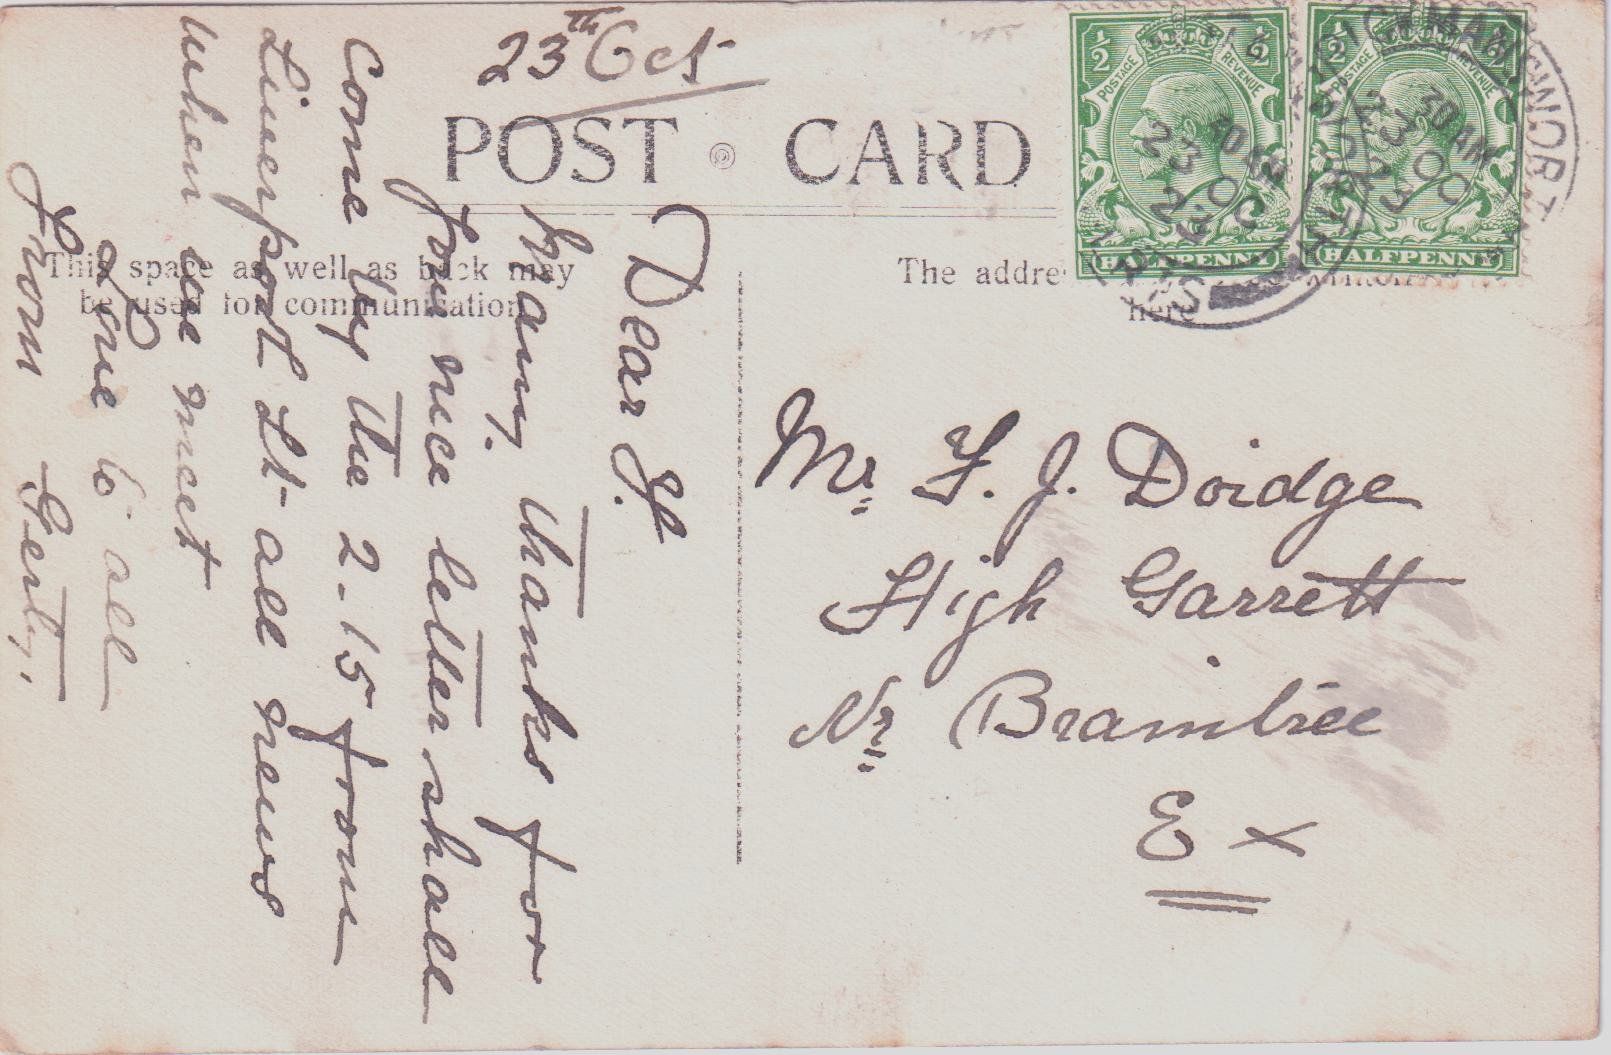 23th Oct
POST CARD
This space as well as back may
be used for communication
The addre
here
Dear F.
Many. thanks for
you nice letter shall
come by the 2-15 from
Liverpool St- all news
when we meet
Love to all
from Gerty.
½ ½
POSTAGE REVENUE
HALFPENNY
½ ½
POSTAGE REVENUE
HALFPENNY
Mr. F. J. Doidge
High Garrett
Nr. Braintree
Ex